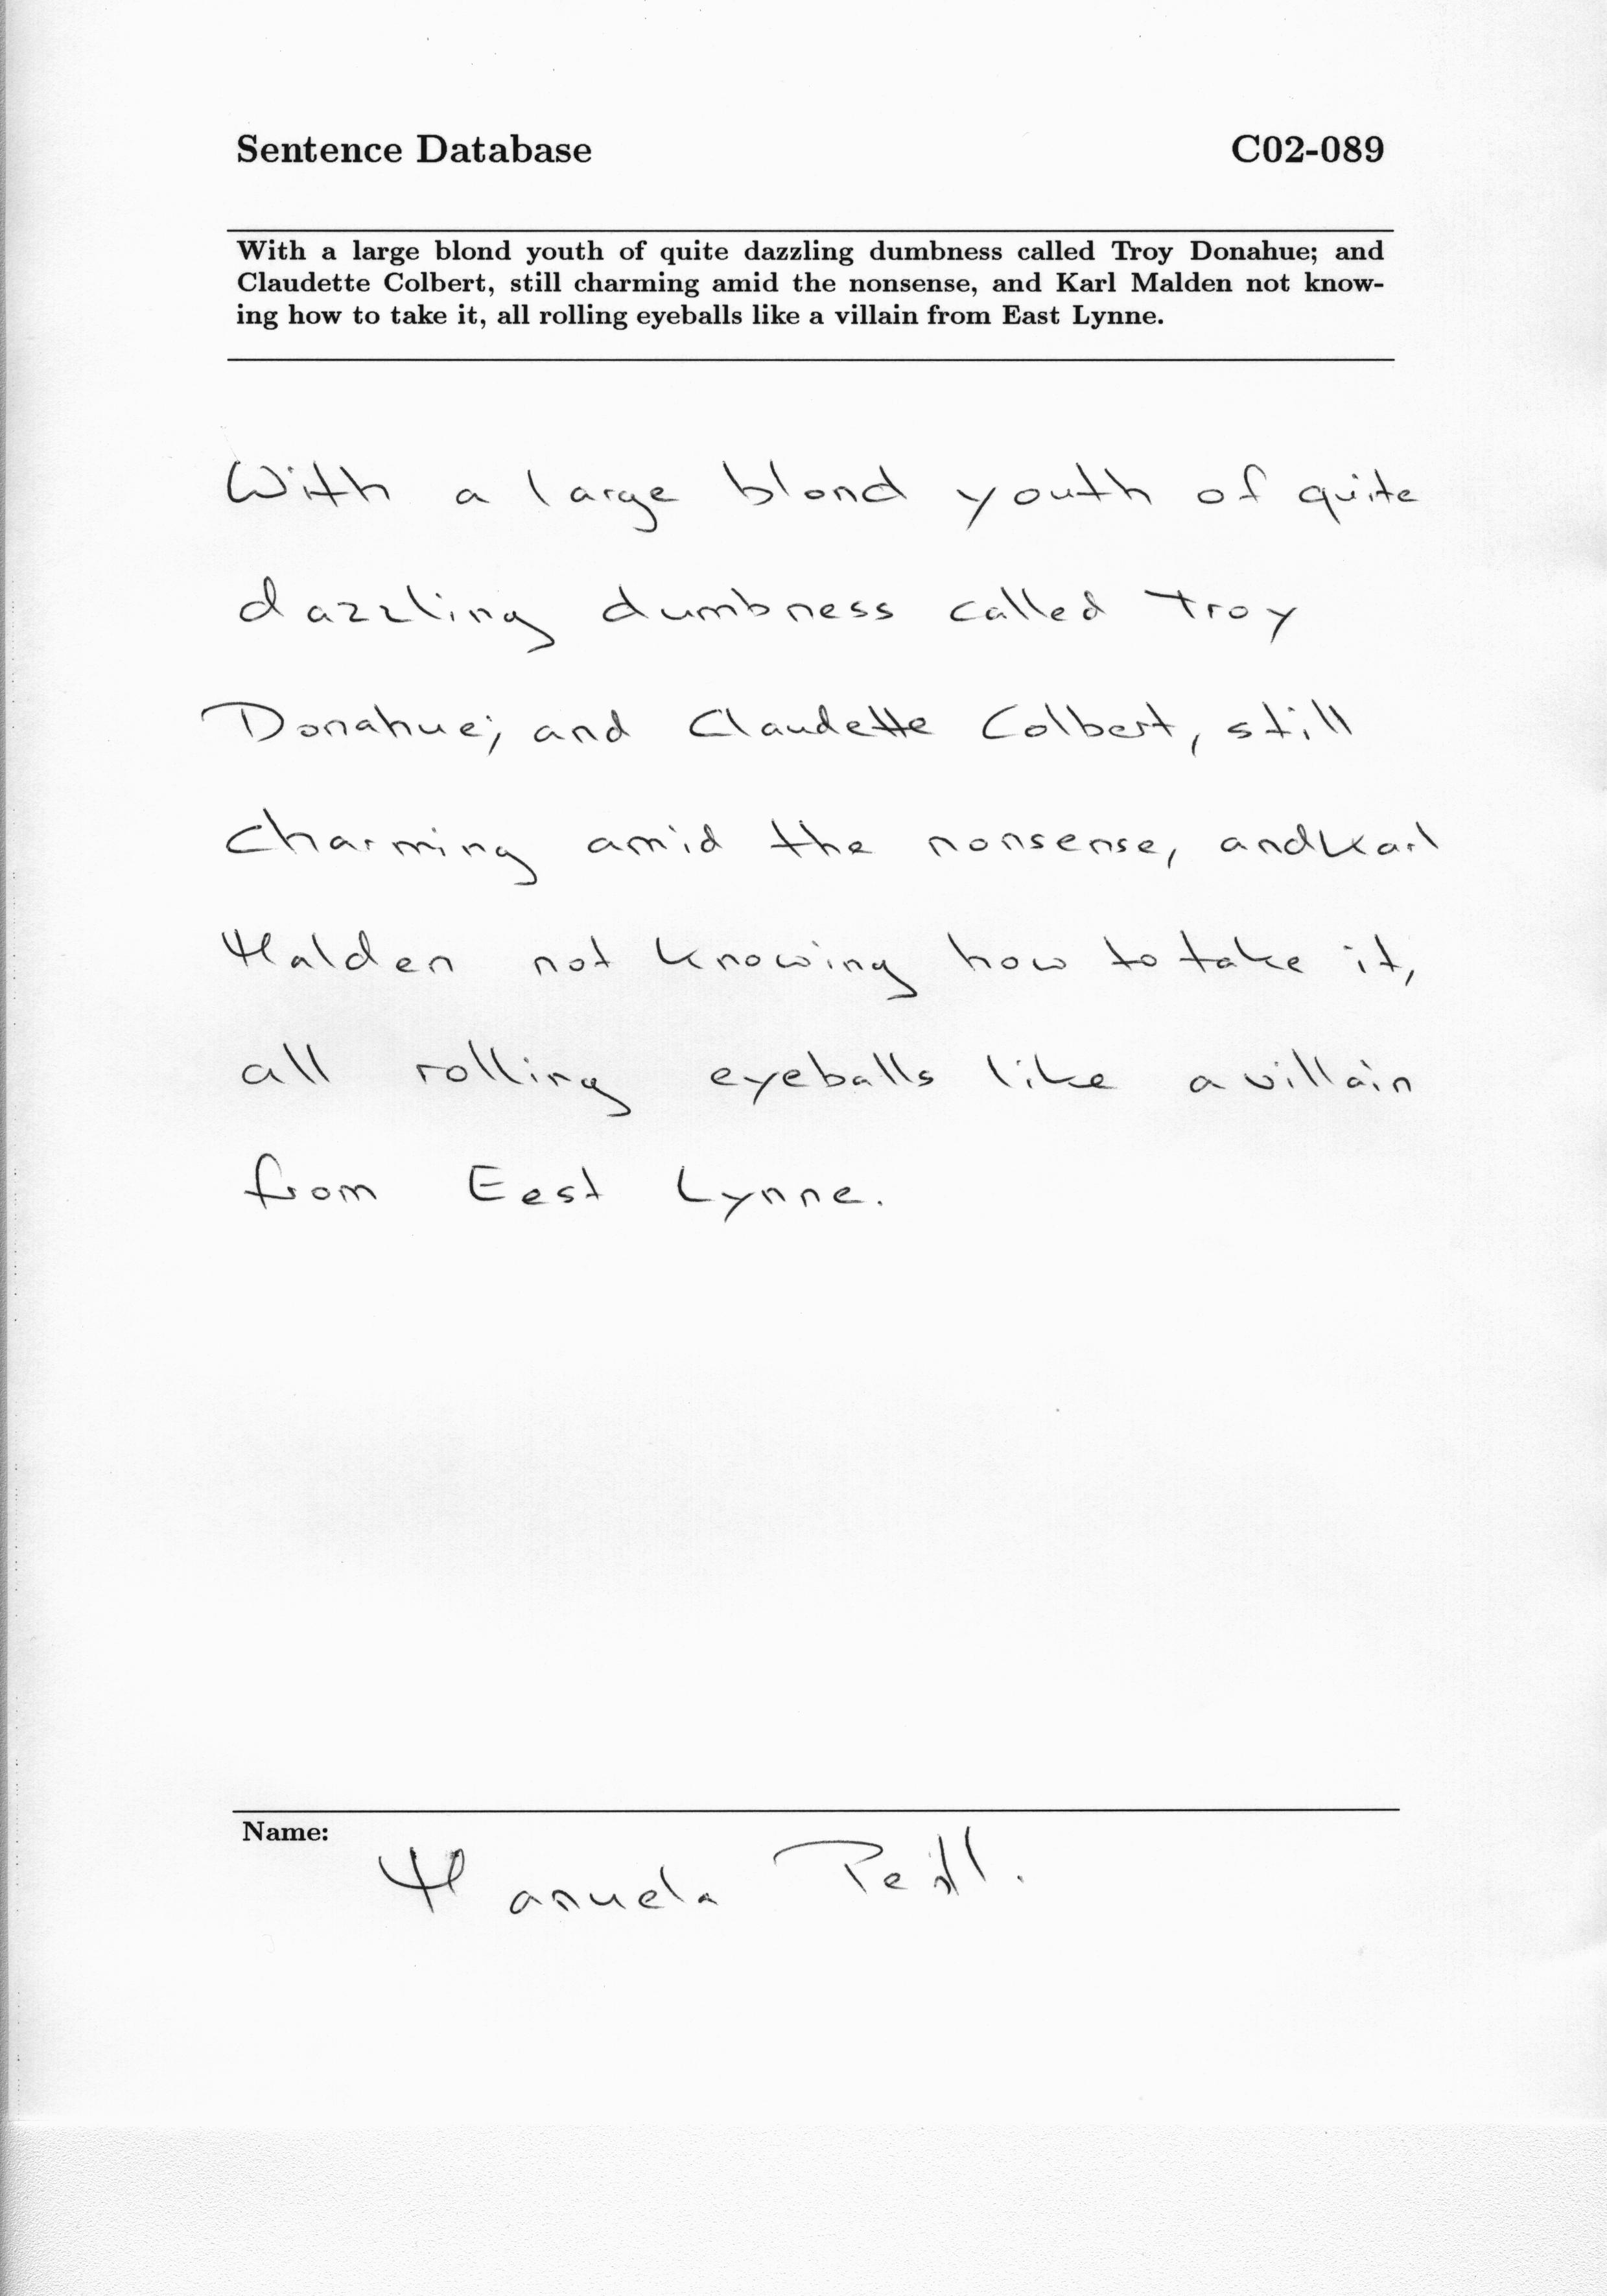 Sentence Database C02-089
With a large blond youth of quite dazzling dumbness called Troy Donahue; and
Claudette Colbert, still charming amid the nonsense, and Karl Malden not know-
ing how to take it, all rolling eyeballs like a villain from East Lynne.
With a large blond youth of quite
dazzling dumbness called Troy
Donahue; and Claudette Colbert, still
charming amid the nonsense, and Karl
Malden not knowing how to take it,
all rolling eyeballs like a villain
from Eest Lynne.
Name:
Manuela